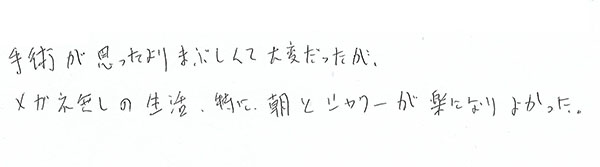 手術が思ったよりまぶしくて大変だったが、
メガネ無しの生活、特に、朝とシャワーが楽になりよかった。